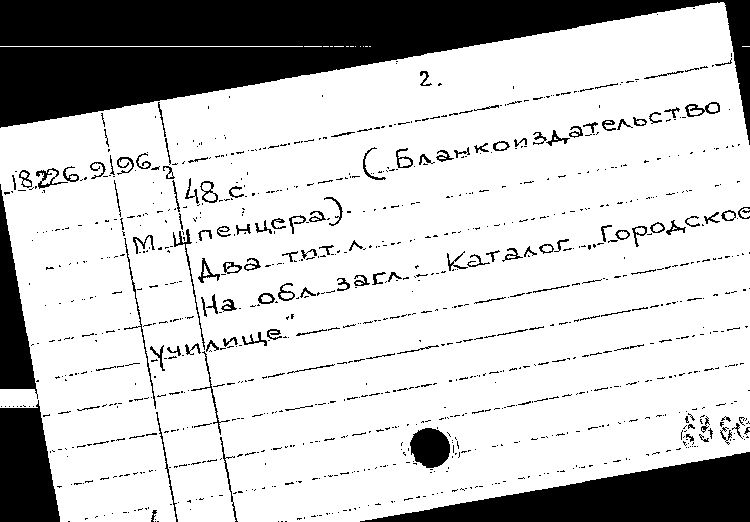 2.
18226.9.96
2
48 с. (Бланкоиздательство
М. Шпенцера).
Два тит. л.
На обл. загл.: Каталог „Городское
училище"